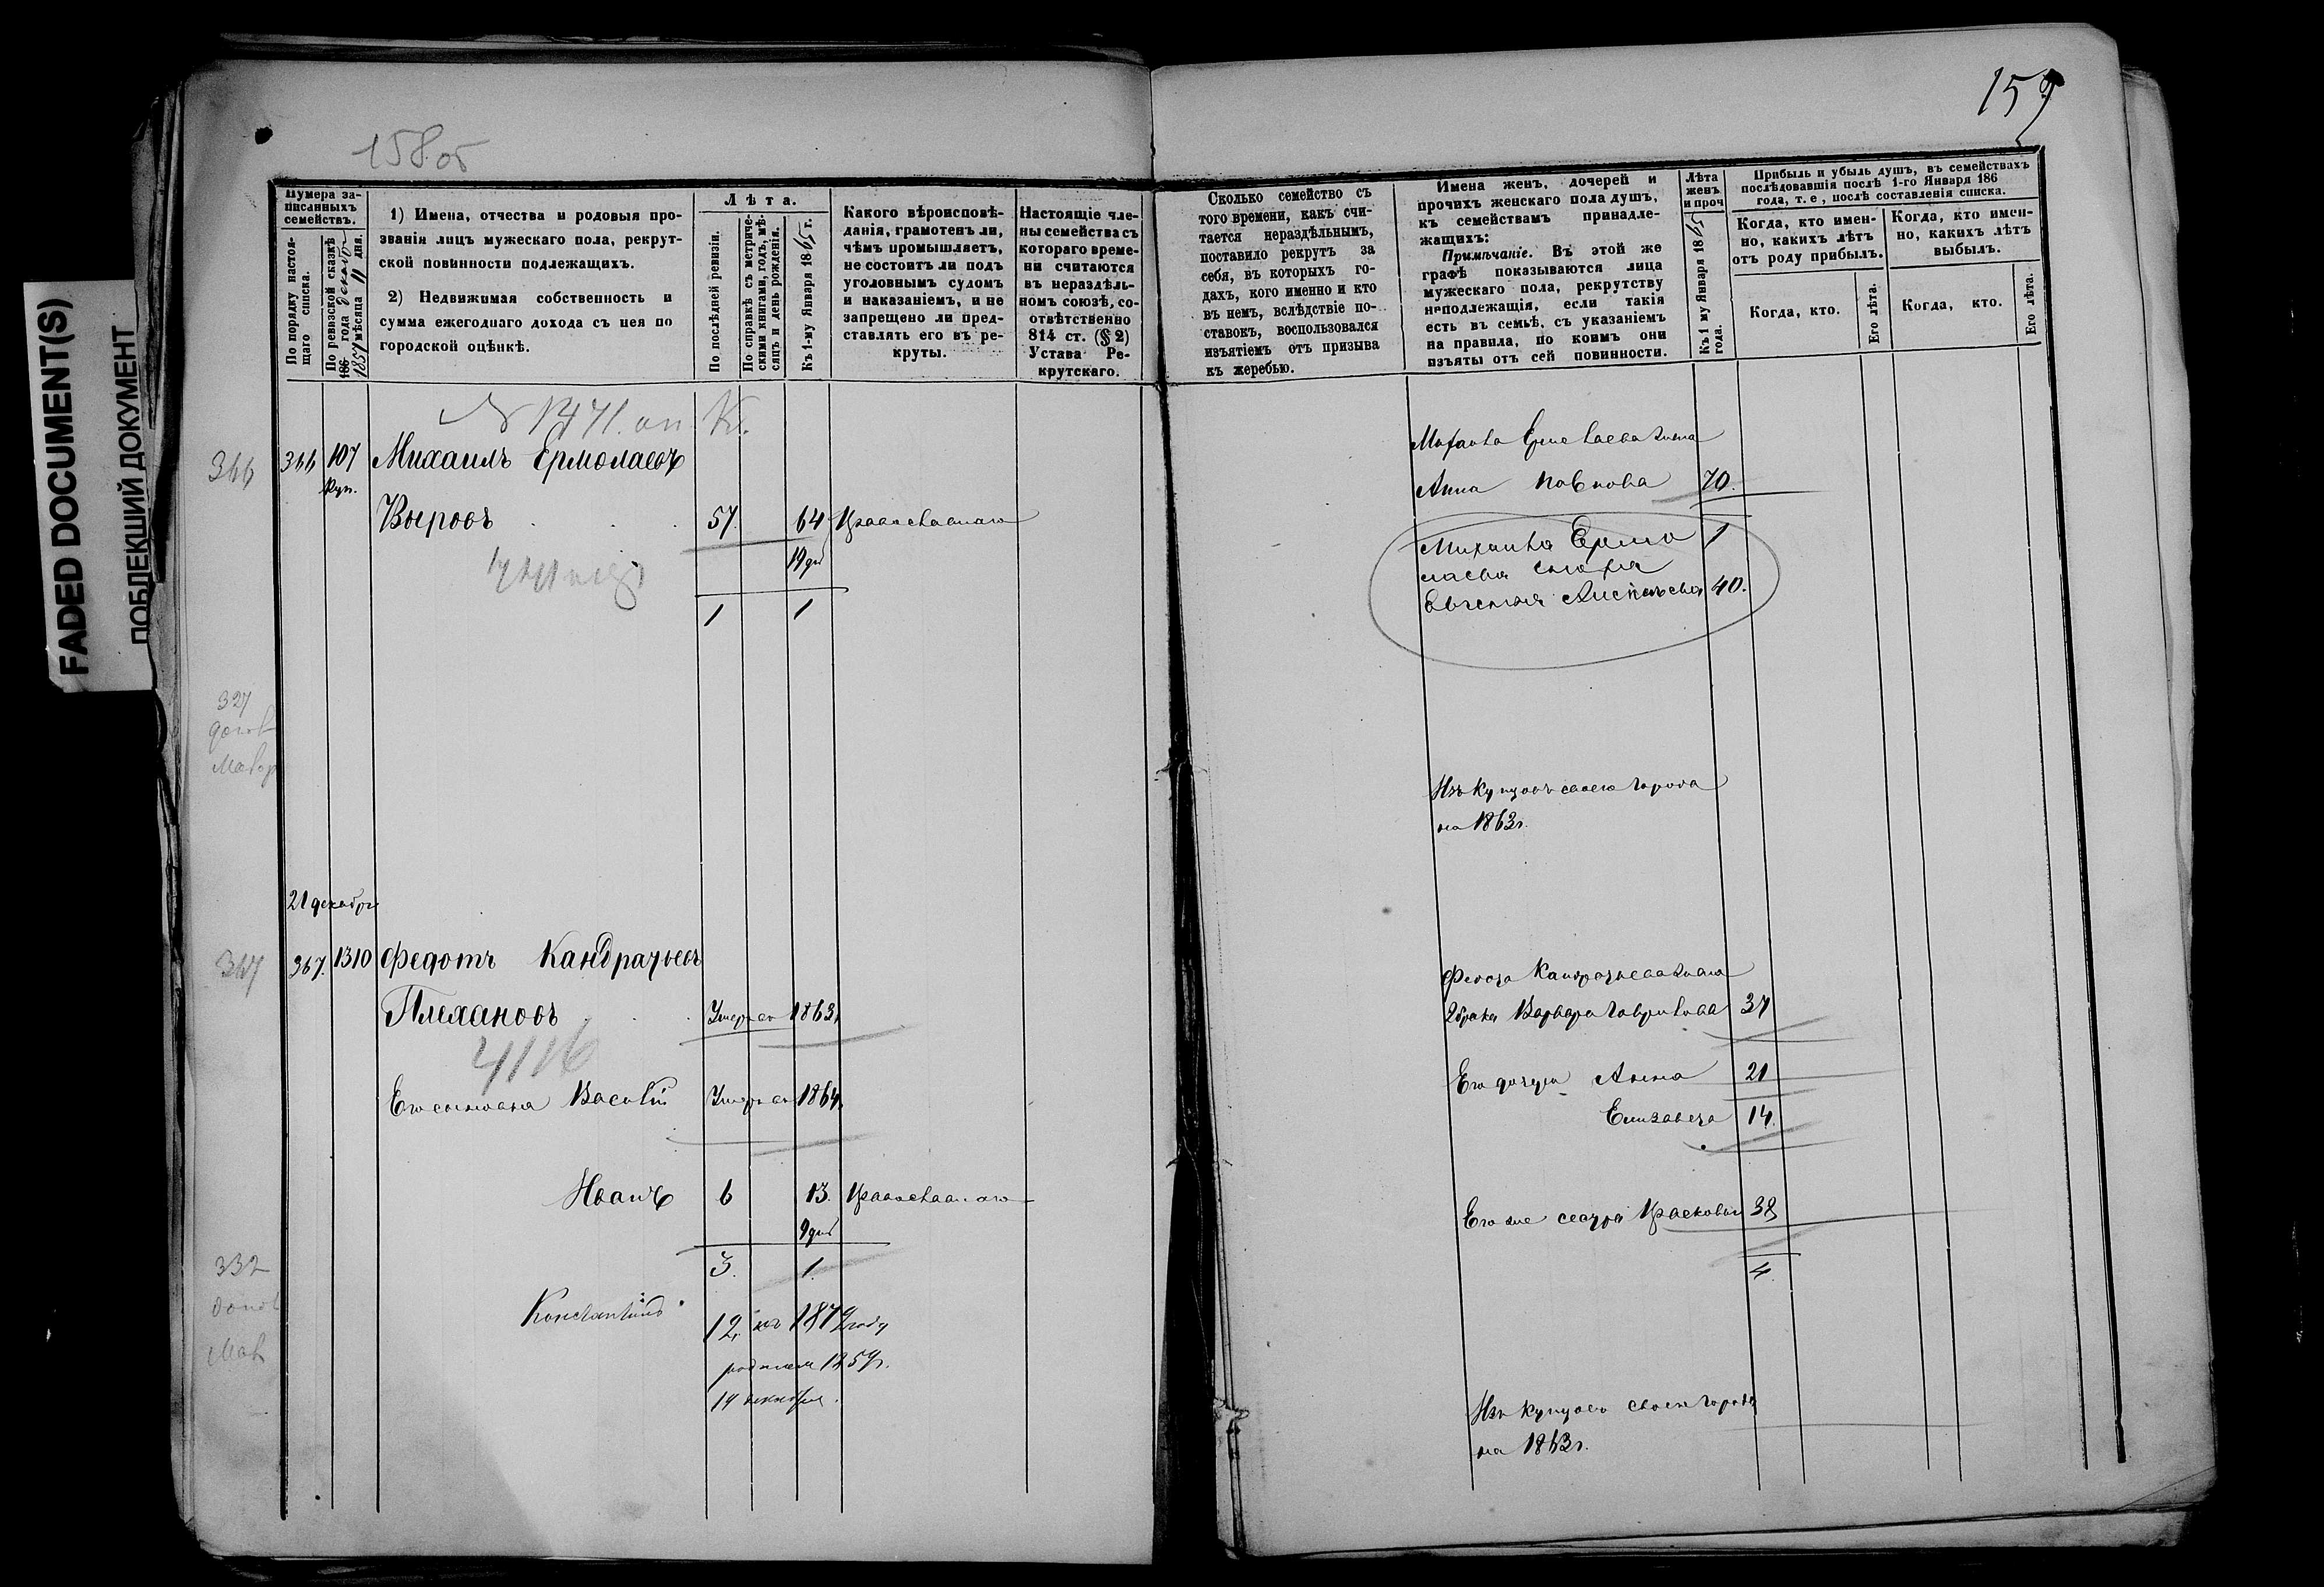 FADED DOCUMENT(S)
ПОБЛЕКШИЙ ДОКУМЕНТ
158 об
Нумера за-
писанныхъ
семействъ.
По порядку настоя-
щаго списка.
По ревизской сказкѣ
186 года декабря
1857 мѣсяца 11 дня.
1) Имена, отчества и родовыя про-
званія лицъ мужескаго пола, рекрут-
ской повинности подлежащихъ.
2) Недвижимая собственность и
сумма ежегоднаго дохода съ нея по
городской оцѣнкѣ.
Лѣта.
По послѣдней ревизіи.
По справкѣ съ метриче-
скими книгами, годъ, мѣ-
сяцъ и день рожденія.
Къ 1-му Января 1865 г.
Какого вѣроисповѣ-
данія, грамотенъ ли,
чѣмъ промышляетъ,
не состоитъ ли подъ
уголовнымъ судомъ
и наказаніемъ, и не
запрещено ли пред-
ставлять его въ ре-
круты.
Настоящіе чле-
ны семейства съ
котораго време-
ни считаются
въ нераздѣль-
номъ союзѣ, со-
отвѣтственно
814 ст. (§ 2)
Устава Ре-
крутскаго.
№ 1471. оп. К.
366 366 107 Михаилъ Ермолаевъ
Куп.
Выровъ 57. 64 Православнаго
19 дпб
1 1
327
Мавр
21 декабря
367 367. 1310 Федотъ Кандратьевъ
Плехановъ Умеръ въ 1863
4116
Его сыновья Василій Умеръ въ 1864.
Иванъ 6 13. Православнаго
9 дпб
3. 1.
332
Мав
Константинъ 12, къ 1872 году
родился 1859 г.
14 декабря.
159
Сколько семейство съ
того времени, какъ счи-
тается нераздѣльнымъ,
поставило рекрутъ за
себя, въ которыхъ го-
дахъ, кого именно и кто
въ немъ, вслѣдствіе по-
ставокъ, воспользовался
изъятіемъ отъ призыва
къ жеребью.
Имена женъ, дочерей и
прочихъ женскаго пола душъ,
къ семействамъ принадле-
жащихъ:
Примѣчаніе. Въ этой же
графѣ показываются лица
мужескаго пола, рекрутству
неподлежащія, если такія
есть въ семьѣ, съ указаніемъ
на правила, по коимъ они
изъяты отъ сей повинности.
Лѣта
женъ
и проч
Къ 1 му Января 1865
года.
Прибыль и убыль душъ, въ семействахъ
послѣдовавшія послѣ 1-го Января 186
года, т. е., послѣ составленія списка.
Когда, кто имен-
но, какихъ лѣтъ
отъ роду прибылъ.
Когда, кто имен-
но, какихъ лѣтъ
выбылъ.
Когда, кто.
Его лѣта.
Когда, кто.
Его лѣта.
Михаила Ермолаева жена
Анна Павлова 70.
1
Михаила Ермо
лаева сноха
Евгения 40.
Изъ купцовъ своего города
на 1863 г.
Федота Кандратьева жена
2 брака Варвара Гаврилова 37
Его дочери Анна 21
Елизавета 14.
Его же сестра Прасковья 38
4.
Изъ купцовъ своего города
на 1863 г.